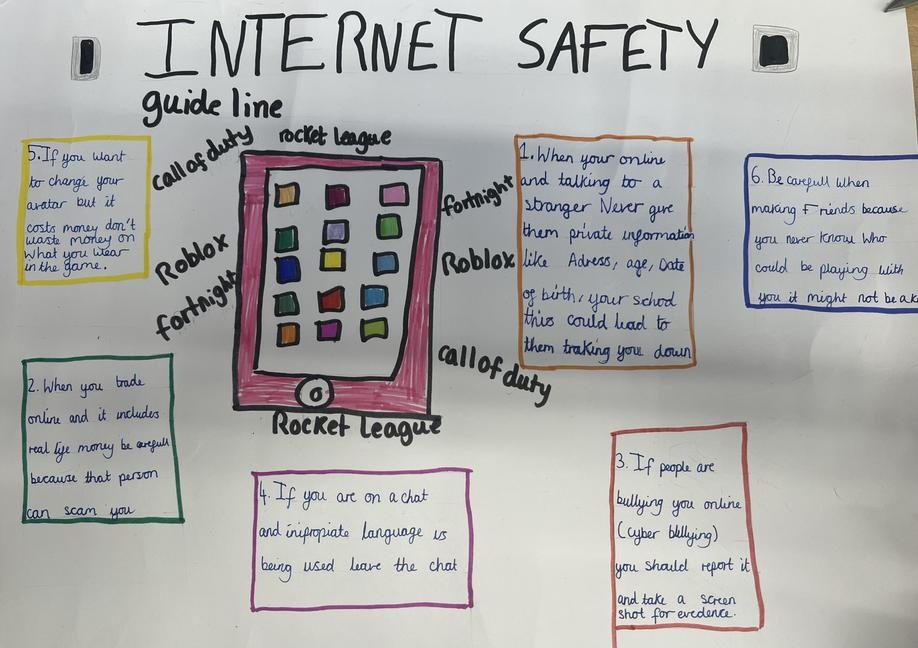 INTERNET SAFETY
guide line
call of duty
rocket league
fortnight
Roblox
Roblox
fortnight
call of duty
Rocket League
5. If you want
to change your
avatar but it
costs money don't
waste money on
what you wear
in the game.
1. When your online
and talking to a
stranger Never give
them private information
like Adress, age, Date
of birth, your school
this could lead to
them traking you down
6. Be carefull when
making Friends because
you never know who
could be playing with
you it might not be a
2. When you trade
online and it includes
real life money be carefull
because that person
can scam you
4. If you are on a chat
and inipropiate language is
being used leave the chat
3. If people are
bullying you online
(cyber bullying)
you should report it
and take a screen
shot for evedence.